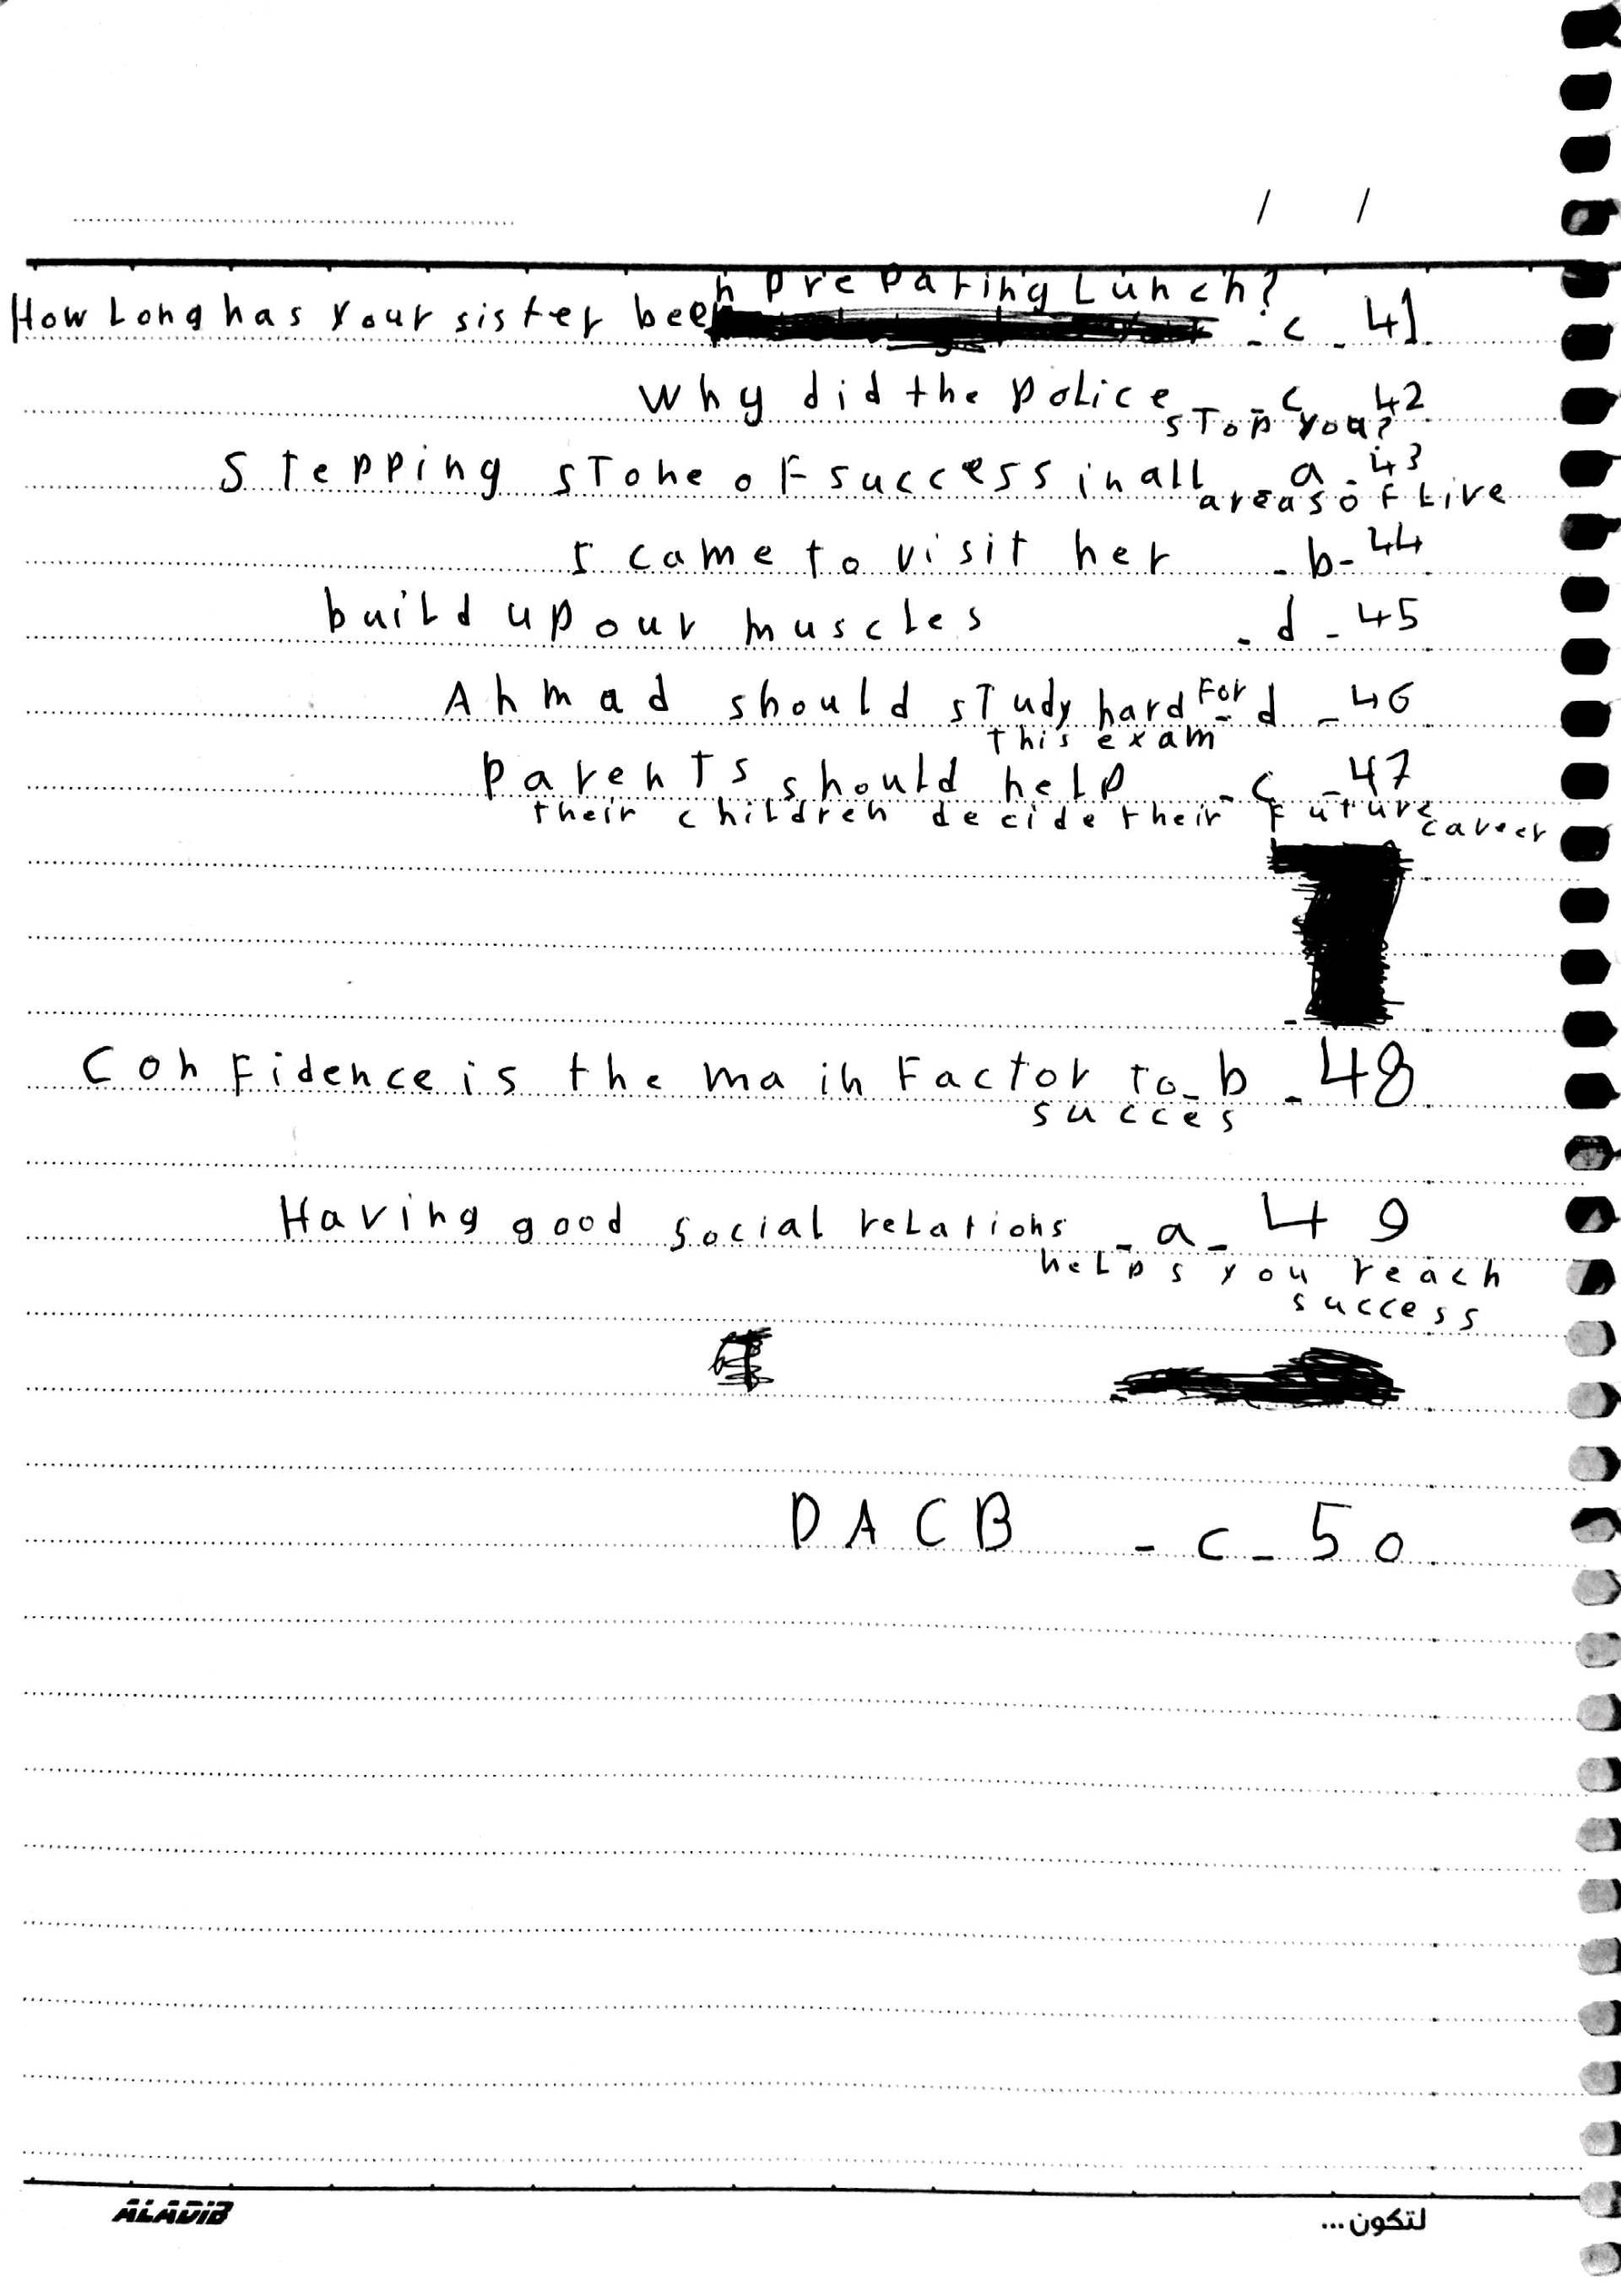 / /
n preparing Lunch?
How Long has your sister bee - c - 41
Why did the police - c - 42
stop you?
Stepping stone of success in all a - 43
areas of Live
I came to visit her - b - 44
build up our muscles - d - 45
Ahmad should study hard For - d - 46
this exam
parents should help - c - 47
their children decide their Future
career
Confidence is the main Factor to - b - 48
succes
Having good social relations - a - 49
helps you reach
success
DACB - c - 50
ALADIB
لتكون...